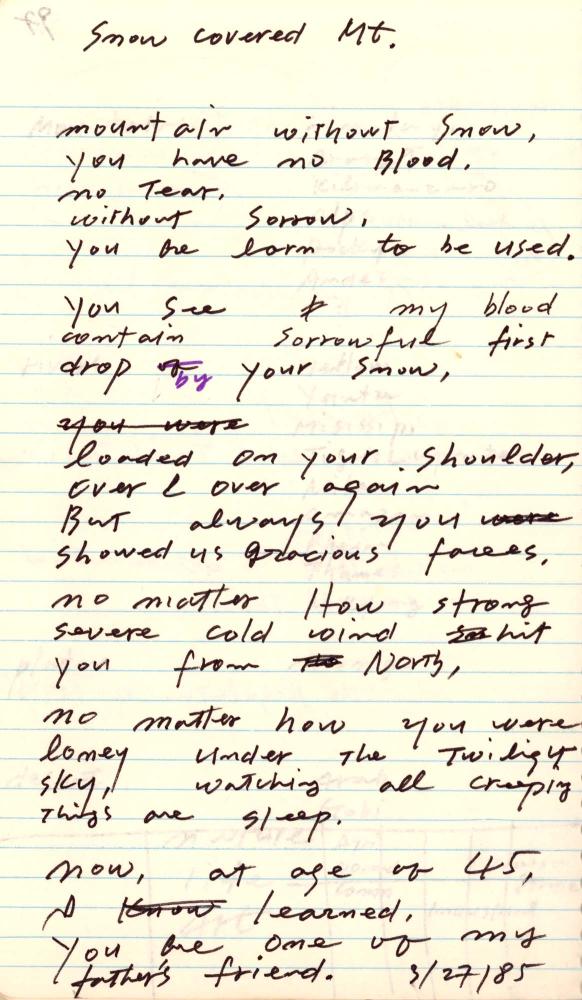 Snow covered Mt.
mountain without Snow,
you have no Blood.
no Tear.
without Sorrow,
you are born to be used.
you see my blood
contain sorrowful first
drop by your Snow,
you were
loaded on your shoulder,
over & over again
But always you were
showed us gracious faces.
no matter How strong
severe cold wind hit
you from the North,
no matter how you were
loney under the Twilight
sky, watching all creeping
Things are sleep.
now, at age of 45,
I know learned,
you are one of my
father's friend. 3/27/85